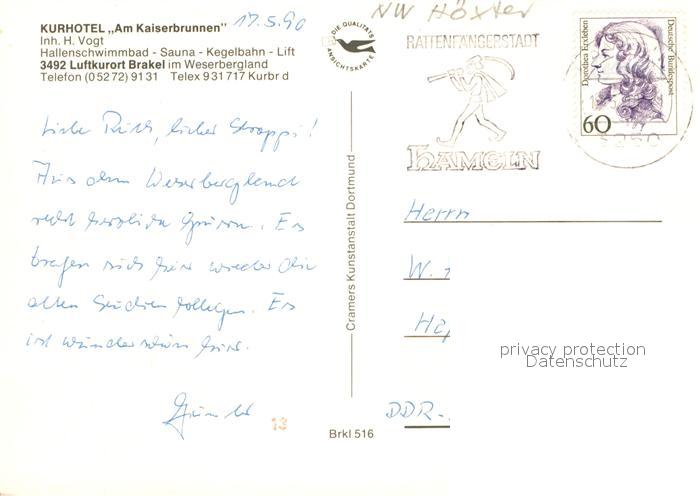 KURHOTEL „Am Kaiserbrunnen" 17.5.90
Inh. H. Vogt
Hallenschwimmbad - Sauna - Kegelbahn - Lift
3492 Luftkurort Brakel im Weserbergland
Telefon (0 52 72) 91 31 Telex 9 31 717 Kurbr d
Liebe Ruth, lieber
Aus dem Weserbergland
recht herzliche Grüsse. Es
treffen sich hier wieder die
alten Studienkollegen. Es
ist wunderschön hier.
13
DIE QUALITÄTS
ANSICHTSKARTE
Cramers Kunstanstalt Dortmund
Brkl 516
NW Höxter
RATTENFÄNGERSTADT
HAMELN
Dorothea Erxleben
Deutsche Bundespost
60
3250
Herrn
W. 1
DDR-
privacy protection
Datenschutz